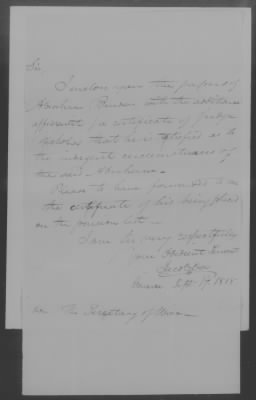 Sir,
I enclose upon the proofs of
Abraham with the additional
certificate of Judge
that he is satisfied as to
the indigent circumstances of
the said Abraham.
Please to have forwarded to me
the certificate of his being placed
on the pension list.
I am Sir very respectfully
your Obedient Servant
Sept 17, 1818
The Secretary of War